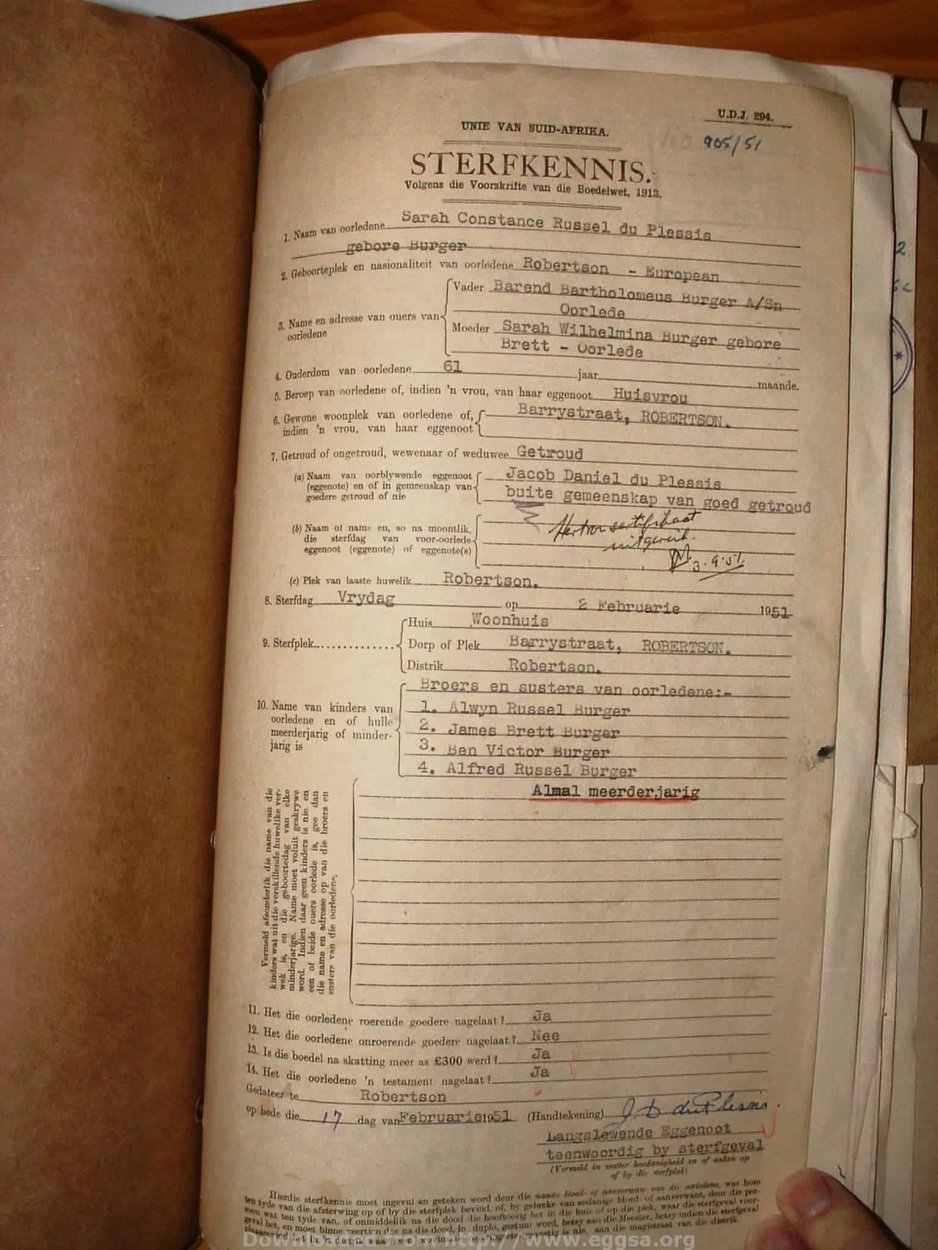 U.D.J. 294.
UNIE VAN SUID-AFRIKA.
905/51
STERFKENNIS.
Volgens die Voorskrifte van die Boedelwet, 1913.
1. Naam van oorledene Sarah Constance Russel du Plessis
gebore Burger
2. Geboorteplek en nasionaliteit van oorledene Robertson - European
3. Name en adresse van ouers van oorledene
Vader Barend Bartholomeus Burger A/Sn
Oorlede
Moeder Sarah Wilhelmina Burger gebore
Brett - Oorlede
4. Ouderdom van oorledene 61 jaar maande.
5. Beroep van oorledene of, indien 'n vrou, van haar eggenoot Huisvrou
6. Gewone woonplek van oorledene of, Barrystraat, ROBERTSON.
indien 'n vrou, van haar eggenoot
7. Getroud of ongetroud, wewenaar of weduwee Getroud
(a) Naam van oorblywende eggenoot Jacob Daniel du Plessis
(eggenote) en of in gemeenskap van buite gemeenskap van goed getroud
goedere getroud of nie
(b) Naam of name en, so na moontlik,
die sterfdag van voor-oorlede
eggenoot (eggenote) of eggenote(s)
uitgereik.
3.9.51
(c) Plek van laaste huwelik Robertson.
8. Sterfdag Vrydag op 2 Februarie 1951
9. Sterfplek
Huis Woonhuis
Dorp of Plek Barrystraat, ROBERTSON.
Distrik Robertson.
10. Name van kinders van
oorledene en of hulle
meerderjarig of minder-
jarig is
Broers en susters van oorledene:-
1. Alwyn Russel Burger
2. James Brett Burger
3. Ben Victor Burger
4. Alfred Russel Burger
Almal meerderjarig
Vermeld afsonderlik die name van die
kinders wat uit die verskillende huwelike ver-
wek is, en die geboortedag van elke
minderjarige. Name moet voluit geskrywe
word. Indien daar geen kinders is nie, en
een of beide ouers oorlede is, gee dan
die name en adresse op van die broers en
susters van die oorledene.
11. Het die oorledene roerende goedere nagelaat? Ja
12. Het die oorledene onroerende goedere nagelaat? Nee
13. Is die boedel na skatting meer as £300 werd? Ja
14. Het die oorledene 'n testament nagelaat? Ja
Gedateer te Robertson
op hede die 17 dag van Februarie 1951 (Handtekening) J D du Plessis
Langslewende Eggenoot
teenwoordig by sterfgeval
(Vermeld in watter hoedanigheid en of aldan op
of by die sterfplek)
Hierdie sterfkennis moet ingevul en geteken word deur die naaste bloed- of aanverwant van die oorledene, wat hom
ten tyde van die afsterwing op of by die sterfplek bevind, of, by gebreke van sodanige bloed- of aanverwant, deur die per-
soon wat ten tyde van, of onmiddellik na die dood die hooftoesig het in die huis of op die plek, waar die sterfgeval voor-
geval het, en moet binne veertien dae na die dood, in duplo, gestuur word, hetsy aan die Meester, hetsy indien die sterfgeval
Download from http://www.eggsa.org